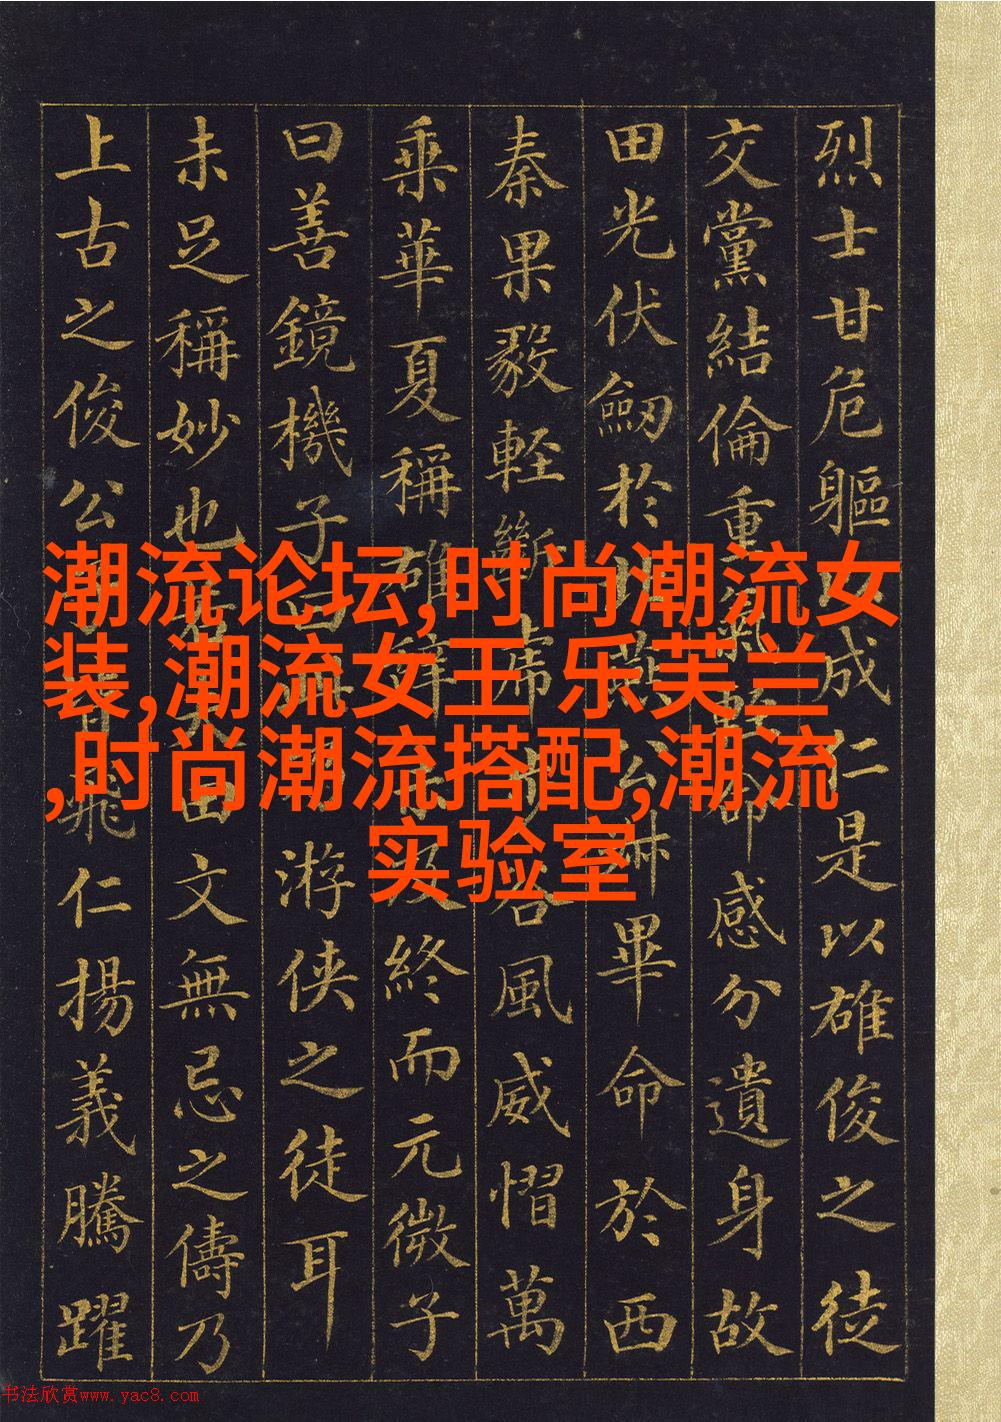 烈士甘危軀成仁是以雄俊之徒
交黨結倫重感分遺身故
田光伏劒於畢命於西
秦果毅輕斷虎谷風威慴萬
乘華夏稱雄終而元微子
曰善鏡機子游俠之徒耳
未足稱妙也田文無忌之儔乃
上古之俊公飛仁揚義騰躍
潮流论坛,时尚潮流女
装,潮流女王 乐芙兰
,时尚潮流搭配,潮流
实验室
书法欣赏www.yac8.com